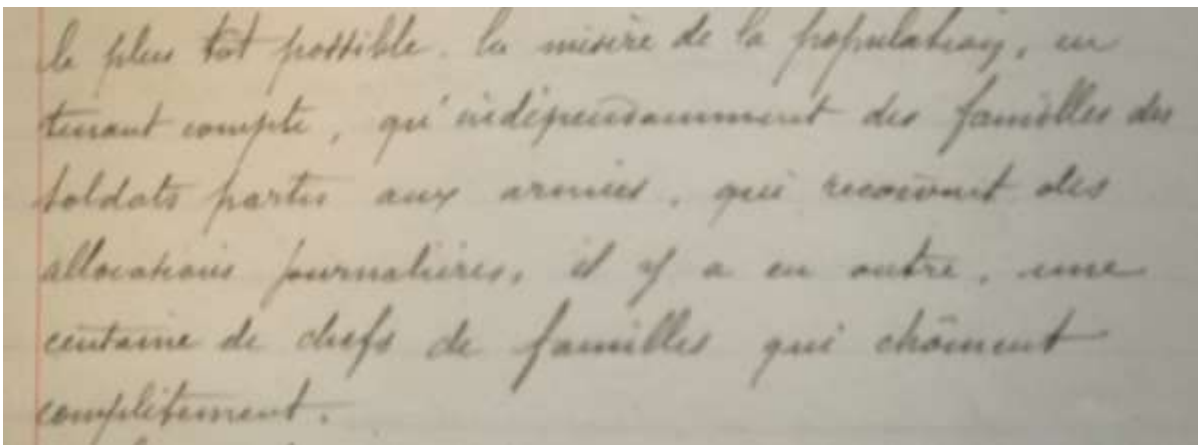 le plus tôt possible. la misère de la population, en
tenant compte, qu'indépendamment des familles des
soldats partis aux armées, qui reçoivent des
allocations journalières, il y a en outre, une
centaine de chefs de familles qui chôment
complètement.